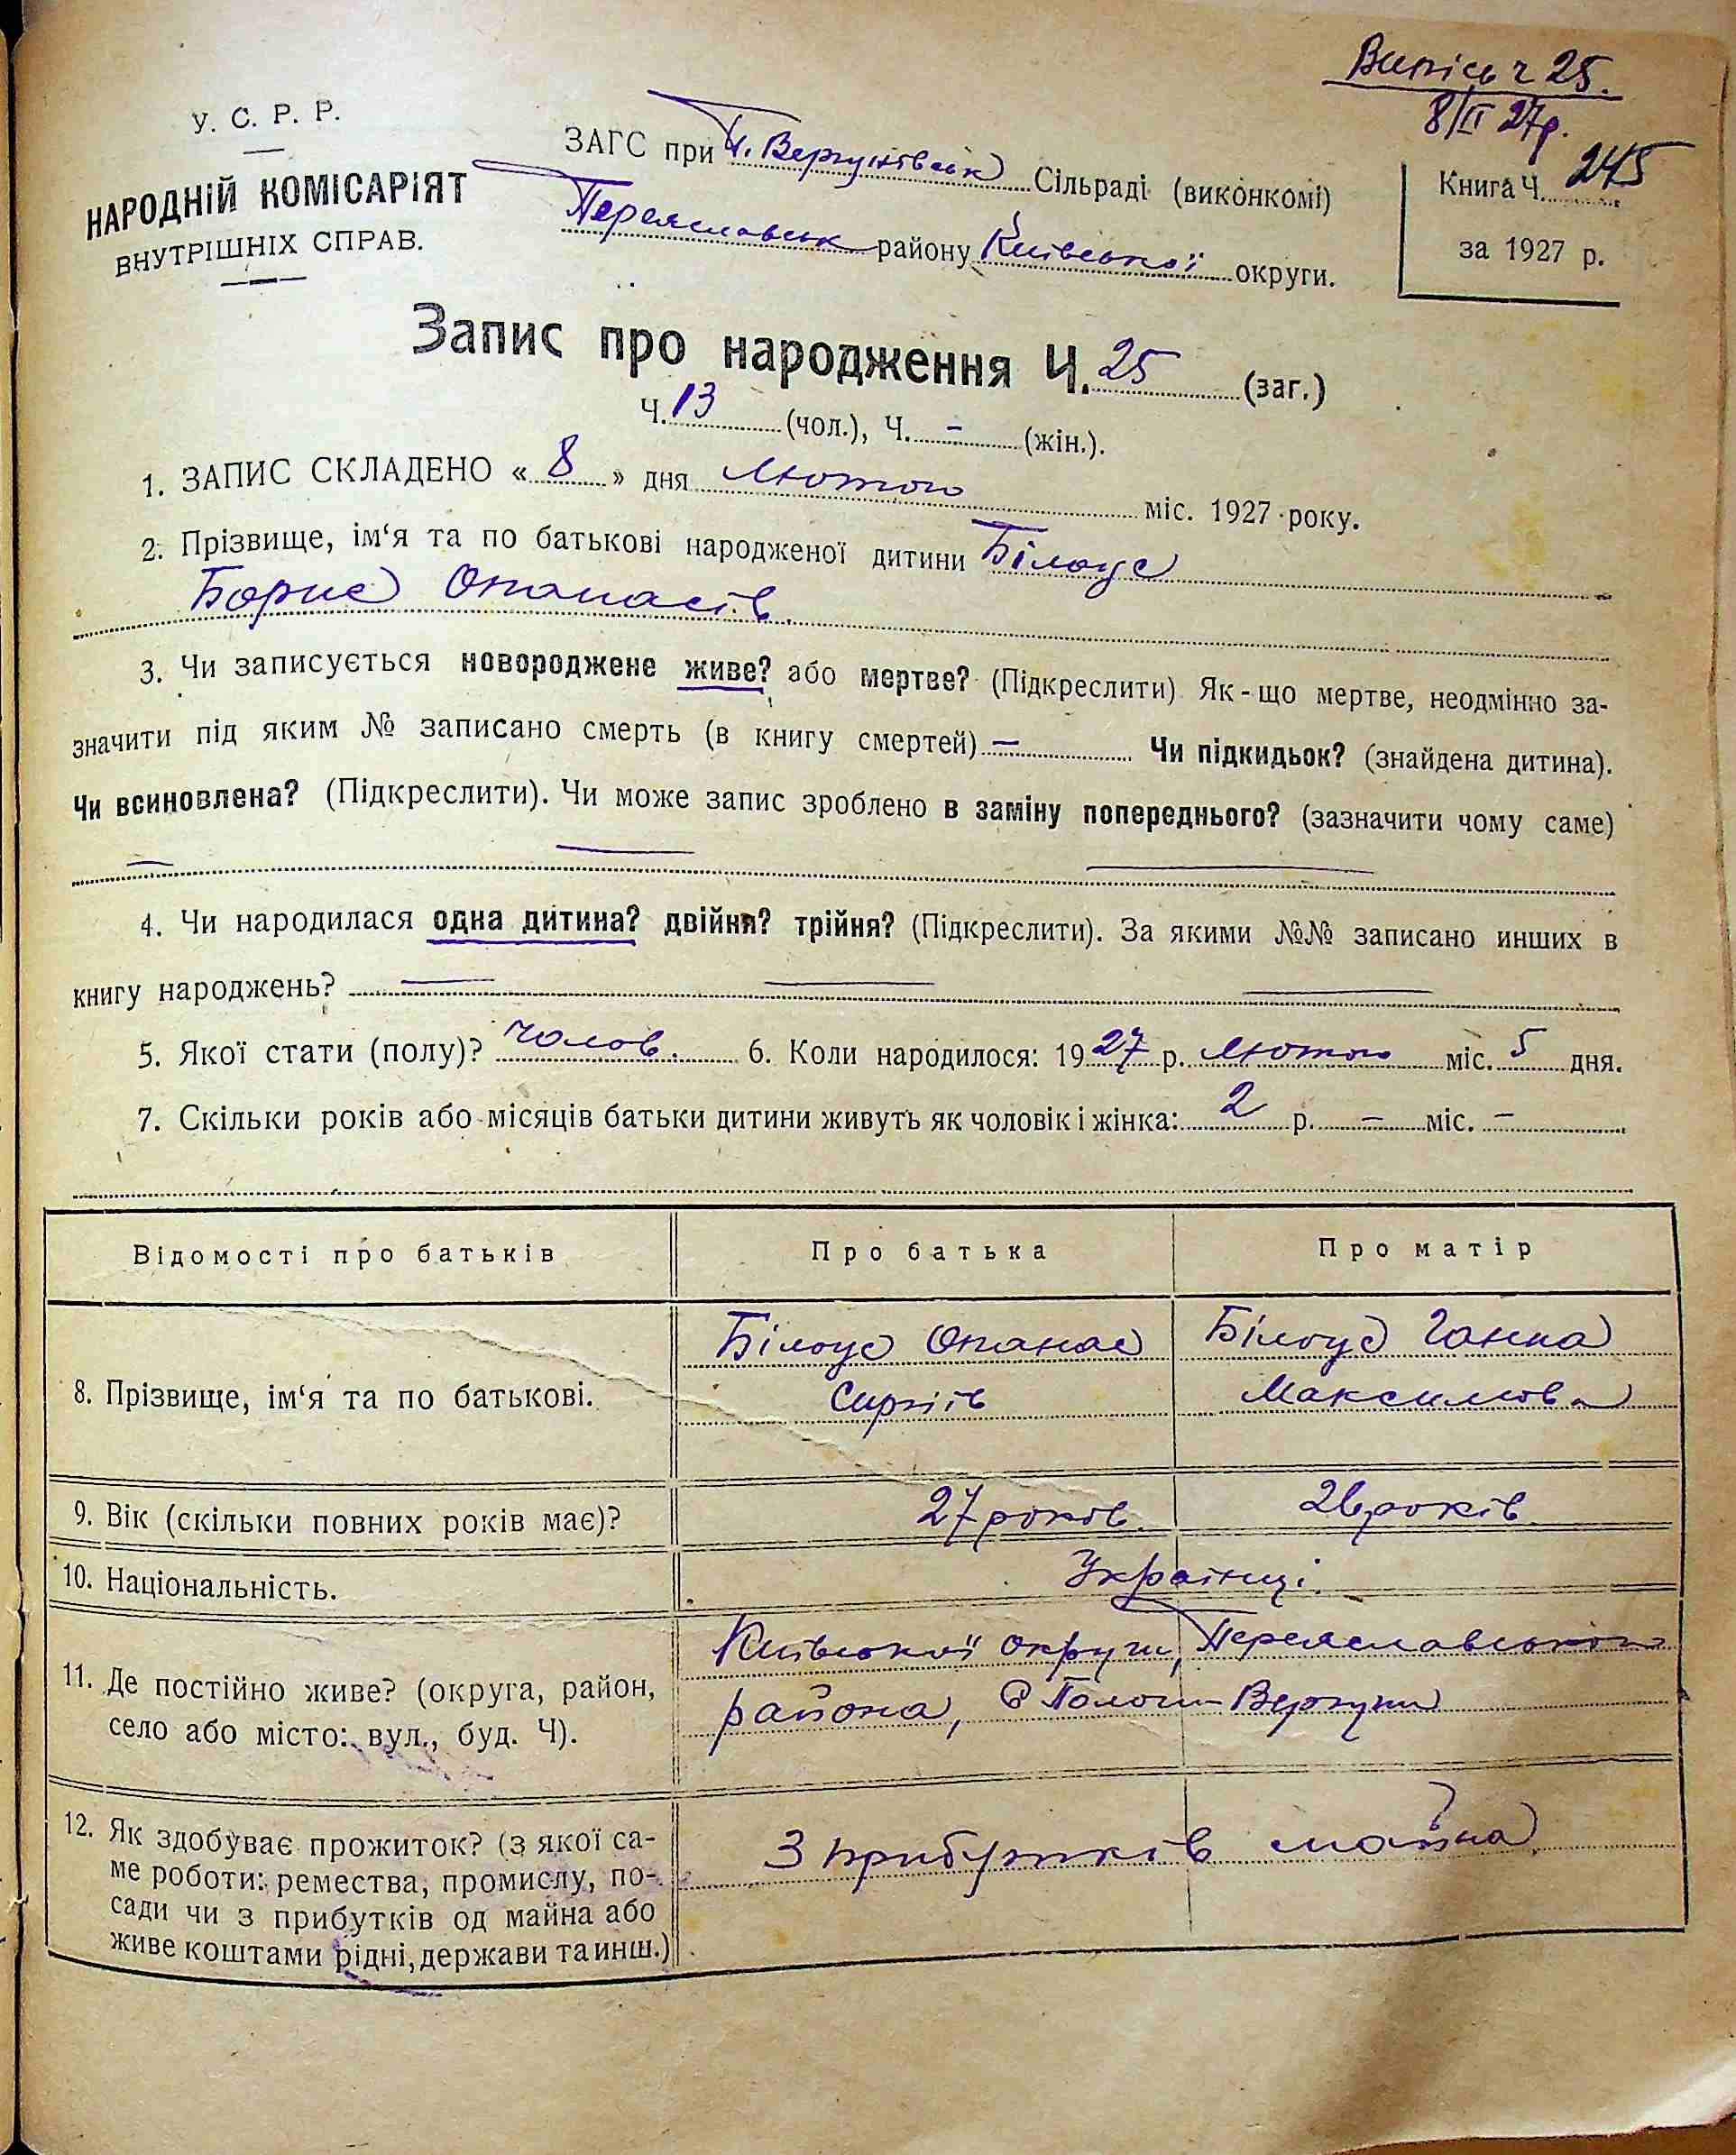 Випись ч 25.
8/II 27р.
У. С. Р. Р.
НАРОДНІЙ КОМІСАРІЯТ
ВНУТРІШНІХ СПРАВ.
ЗАГС при П. Вергунівськ Сільраді (виконкомі)
Переяславськ району Київської округи.
Книга Ч. 245
за 1927 р.
Запис про народження Ч. 25 (заг.)
Ч. 13 (чол.), Ч. – (жін.).
1. ЗАПИС СКЛАДЕНО « 8 » дня Лютого міс. 1927 року.
2. Прізвище, ім‘я та по батькові народженої дитини Білоус
Борис Опанасів.
3. Чи записується новороджене живе? або мертве? (Підкреслити) Як-що мертве, неодмінно за-
значити під яким № записано смерть (в книгу смертей) – Чи підкидьок? (знайдена дитина).
Чи всиновлена? (Підкреслити). Чи може запис зроблено в заміну попереднього? (зазначити чому саме)
4. Чи народилася одна дитина? двійня? трійня? (Підкреслити). За якими №№ записано инших в
книгу народжень?
5. Якої стати (полу)? чолов. 6. Коли народилося: 1927 р. Лютого міс. 5 дня.
7. Скільки років або місяців батьки дитини живуть як чоловік і жінка: 2 р. – міс. –
Відомості про батьків Про батька Про матір
8. Прізвище, ім‘я та по батькові.
Білоус Опанас
Сиргіїв
Білоус Ганна
Максимова
9. Вік (скільки повних років має)? 27 років. 26 років.
10. Національність. Українці.
11. Де постійно живе? (округа, район,
село або місто: вул., буд. Ч).
Київської округи, Переяславського
района, с Пологи-Вергуни
12. Як здобуває прожиток? (з якої са-
ме роботи: ремества, промислу, по-
сади чи з прибутків од майна або
живе коштами рідні, держави та инш.)
З прибутків майна